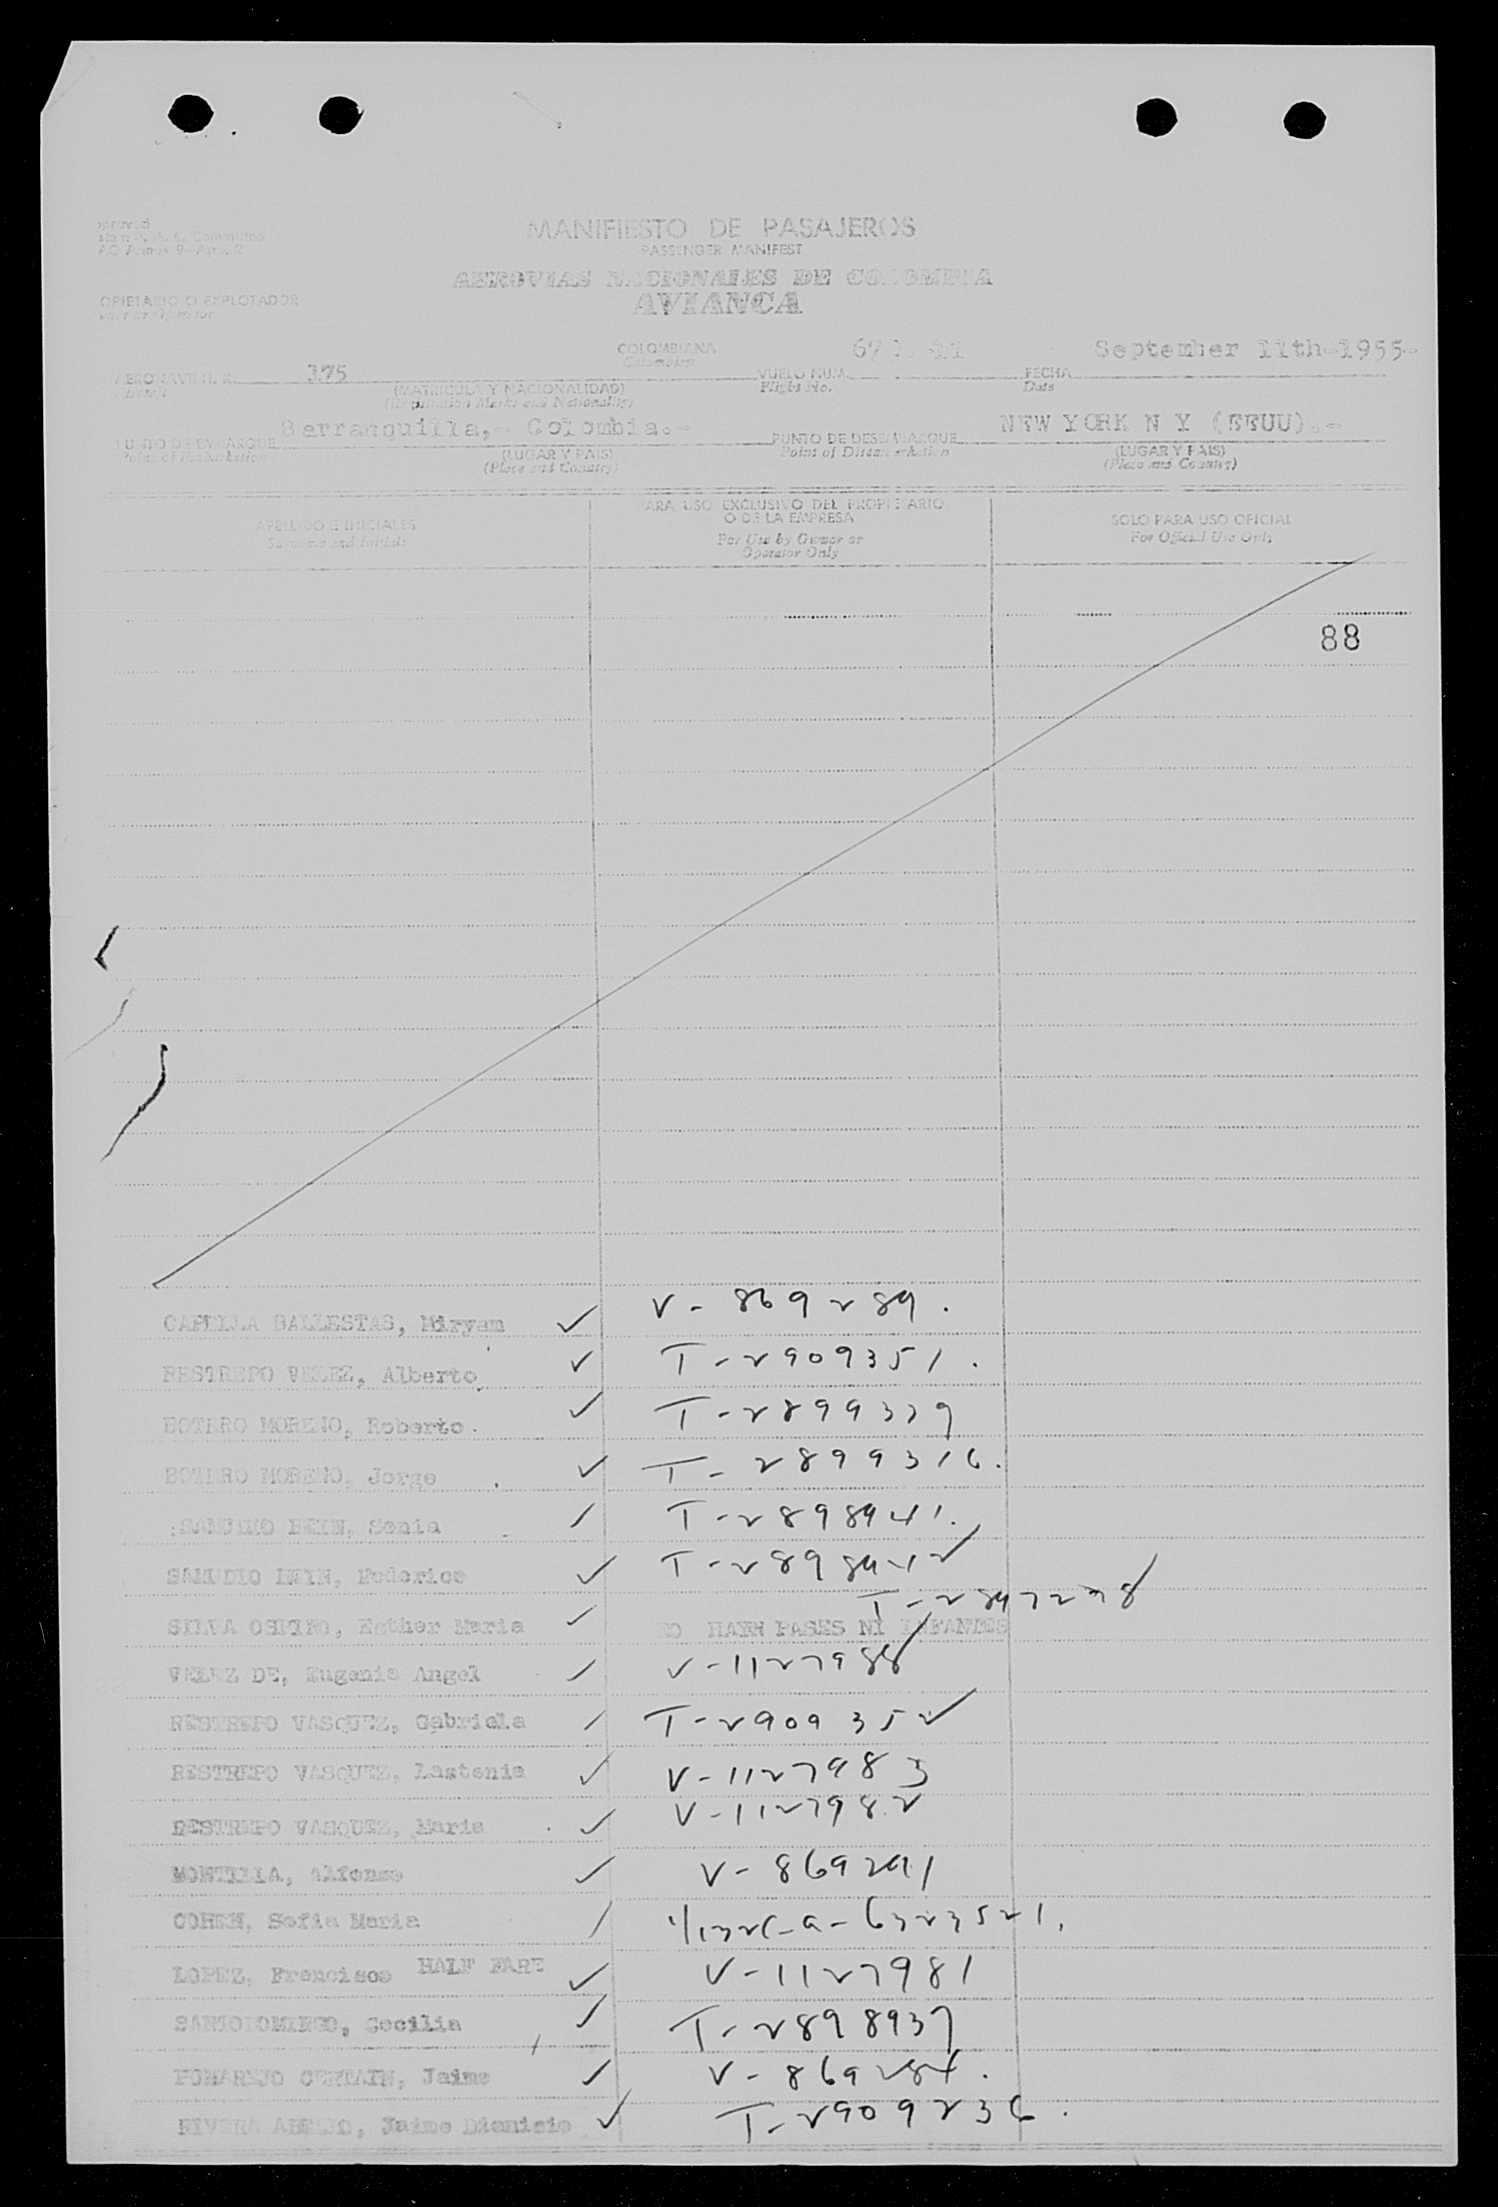 MANIFIESTO DE PASAJEROS
PASSENGER MANIFEST
AEROVIAS NACIONALES DE COLOMBIA
AVIANCA
COLOMBIANA
Colombian
September 11th-1955-
175
(MATRICULA Y NACIONALIDAD)
(Registration Marks and Nationality)
VUELO NUM.
Flight No.
FECHA
Date
Barranquilla,- Colombia.-
(LUGAR Y PAIS)
(Place and Country)
PUNTO DE DESEMBARQUE
Point of Disembarkation
NEW YORK N Y (EEUU).-
(LUGAR Y PAIS)
(Place and Country)
APELLIDO E INICIALES
Surname and Initials
PARA USO EXCLUSIVO DEL PROPIETARIO
O DE LA EMPRESA
For Use by Owner or
Operator Only
SOLO PARA USO OFICIAL
For Official Use Only
88
CAPELLA BALLESTAS, Miryam V-869289.
RESTREPO VELEZ, Alberto T-2909351.
BOTERO MORENO, Roberto. T-2899339
BOTERO MORENO, Jorge T-2899316.
Sonia T-2898941.
SAMUDIO Federico T-2898942
T-2897298
SILVA Esther Maria NO HAEN PASES NI INFANTES
VELEZ DE, Eugenia Angel V-1127988
RESTREPO VASQUEZ, Gabriela T-2909352
RESTREPO VASQUEZ, Lastenia V-1127983
RESTREPO VASQUEZ, Maria V-1127982
MONTILLA, Alfonso V-869291
COHEN, Sofia Maria
LOPEZ, Francisco HALF FARE V-1127981
SANTODOMINGO, Cecilia T-2898937
PUMAREJO CERTAIN, Jaime V-869284.
RIVERA Jaime Dionisio T-2909236.